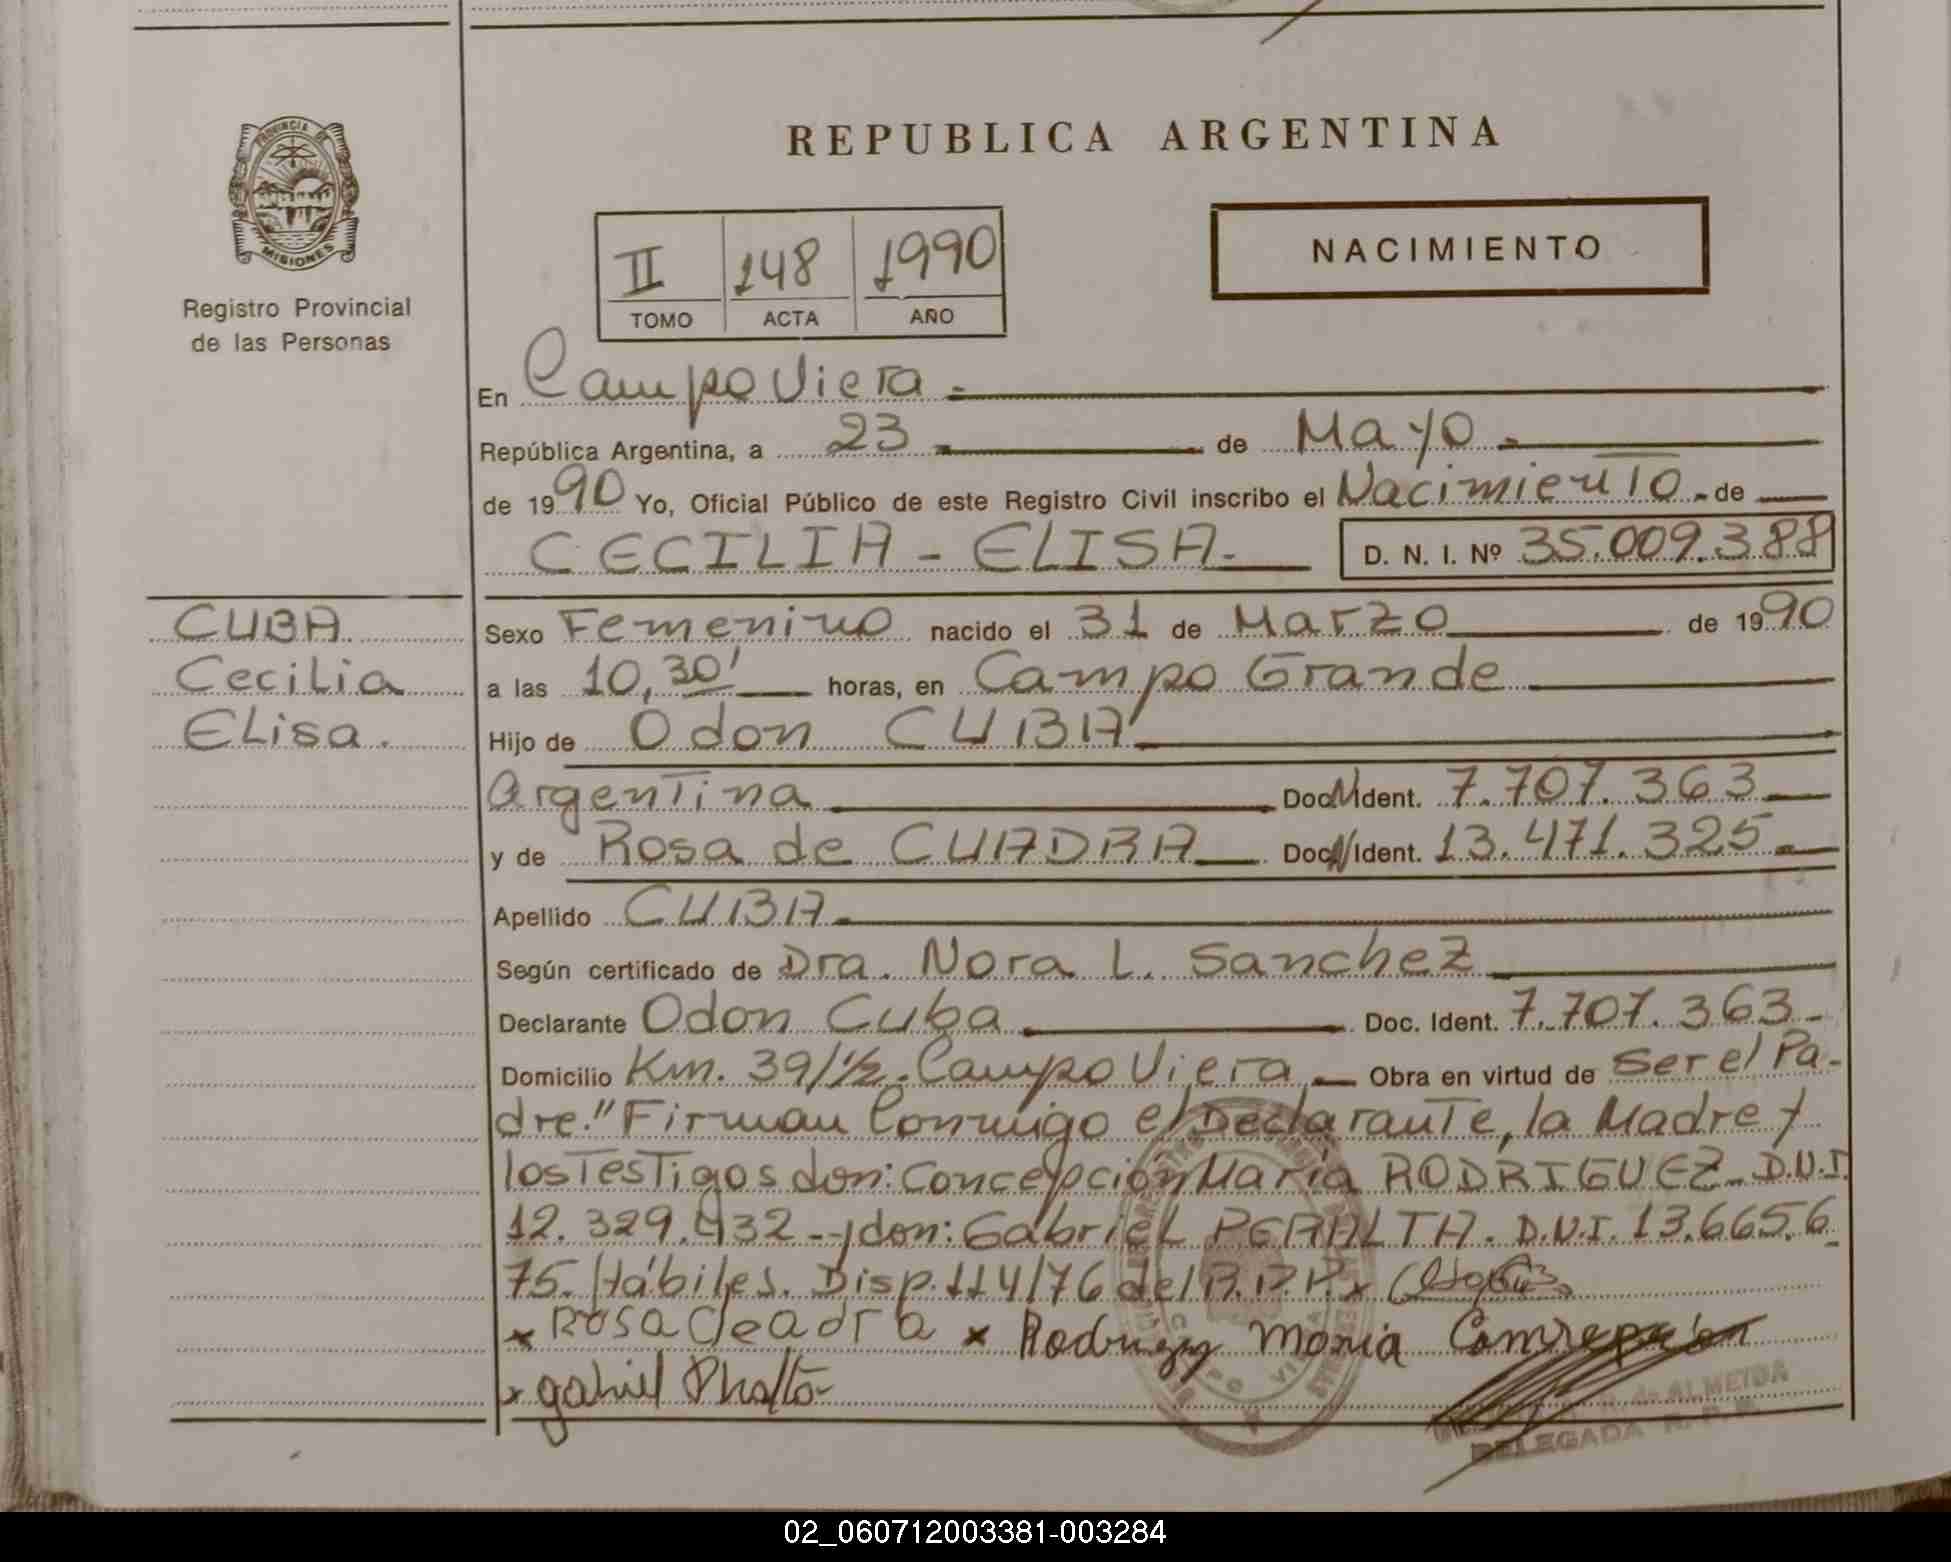 PROVINCIA DE
MISIONES
Registro Provincial
de las Personas
REPUBLICA ARGENTINA
II 148 1990
TOMO ACTA AÑO
NACIMIENTO
En Campo Viera.-
República Argentina, a 23 de Mayo.-
de 1990 Yo, Oficial Público de este Registro Civil inscribo el Nacimiento.- de
CECILIA - ELISA.- D. N. I. Nº 35.009.388
CUBA.
Cecilia
Elisa.
Sexo Femenino nacido el 31 de Marzo de 1990
a las 10,30' horas, en Campo Grande
Hijo de Odon CUBA
Argentina Doc. Ident. 7.707.363
y de Rosa de CUADRA Doc. Ident. 13.471.325.-
Apellido CUBA.
Según certificado de Dra. Nora L. Sanchez
Declarante Odon Cuba Doc. Ident. 7.707.363.-
Domicilio Km. 39/½. Campo Viera,- Obra en virtud de ser el Pa-
dre." Firman Conmigo el Declarante, la Madre y
los Testigos don: Concepción María RODRIGUEZ- D.N.I.
12.329.432 -y don: Gabriel PERALTA. D.N.I. 13.665.6
75. Hábiles. Disp. 114/76 del R.P.P. x
x Rosa Cuadra x Rodriguez Maria Concepción
x gabriel Peralta-
de ALMEIDA
DELEGADA R. P. P.
02_060712003381-003284